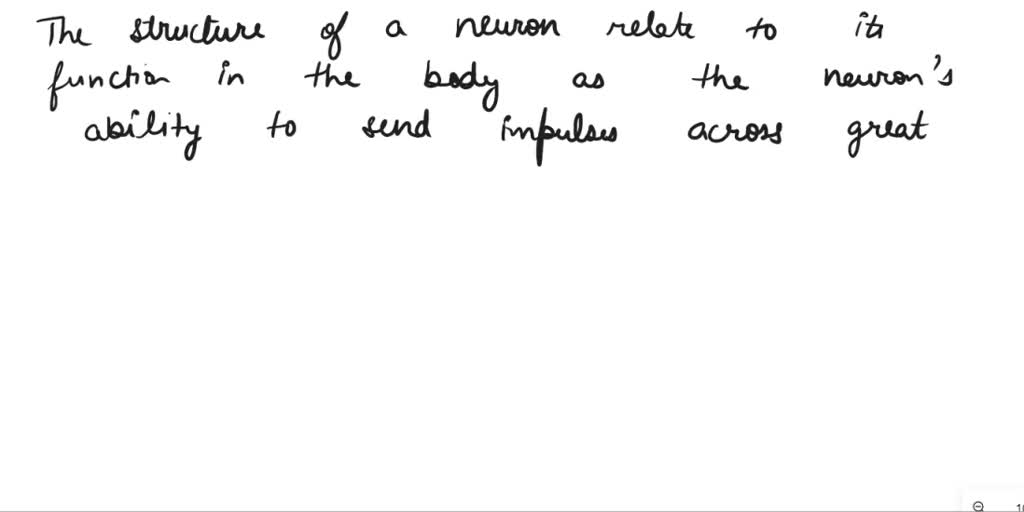 The structure of a neuron relate to its
function in the body as the neuron's
ability to send impulses across great